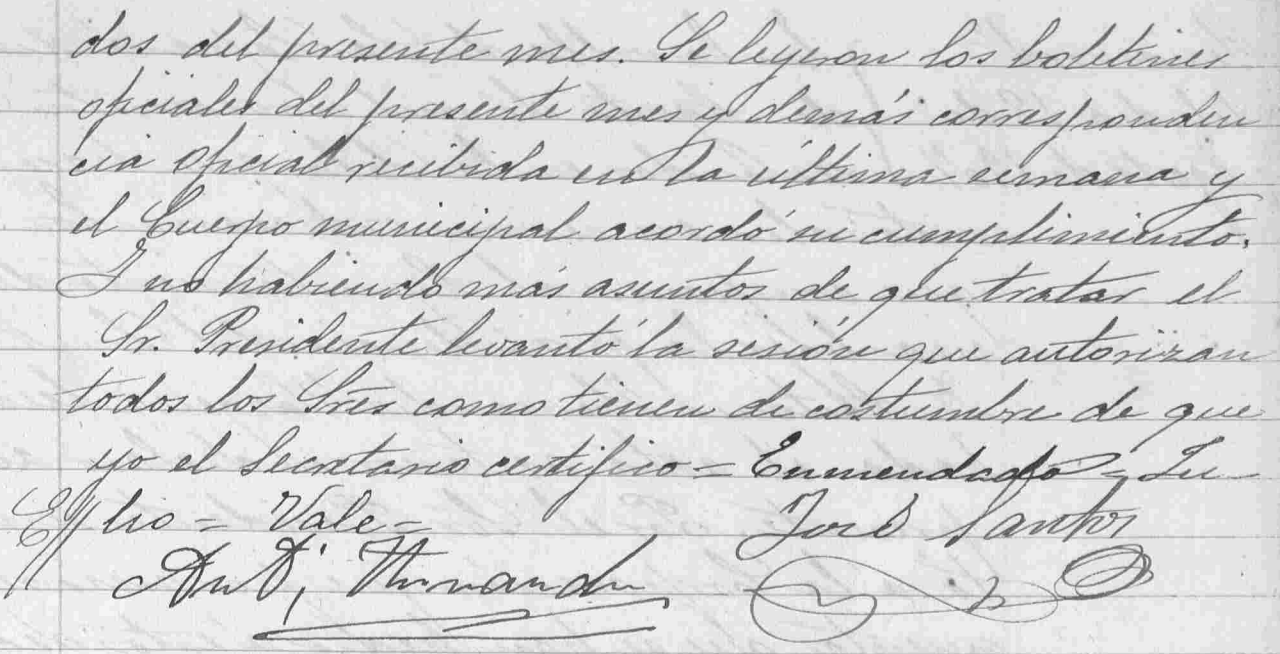 dos del presente mes. Se leyeron los boletines
oficiales del presente mes y demás corresponden
cia oficial recibida en la última semana y
el Cuerpo municipal acordó su cumplimiento.
Y no habiendo más asuntos de que tratar el
Sr. Presidente levantó la sesión que autorizan
todos los Sres como tienen de costumbre de que
yo el Secretario certifico = Enmendado = Ju-
lio = Vale =
José Santos
Hernandez